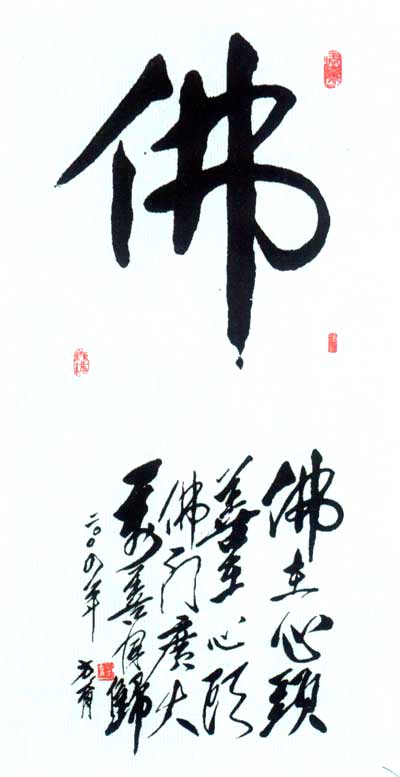 佛
佛在心頭
善在心頭
佛門廣大
善歸
二〇〇四年